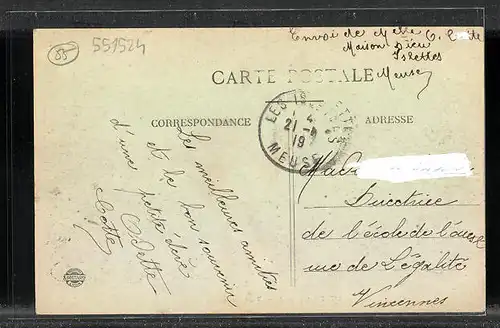 55
551524
Envoi de Melle O.
Maison Dieu
Islettes
Meuse
CARTE POSTALE
CORRESPONDANCE
ADRESSE
LES ISLETTES
4
21
19
MEUSE
Les meilleures amitiés
et le bon souvenir
d'une petite élève
Odette
Madame
Directrice
de l'école de l'ouest
rue de l'Égalité
Vincennes